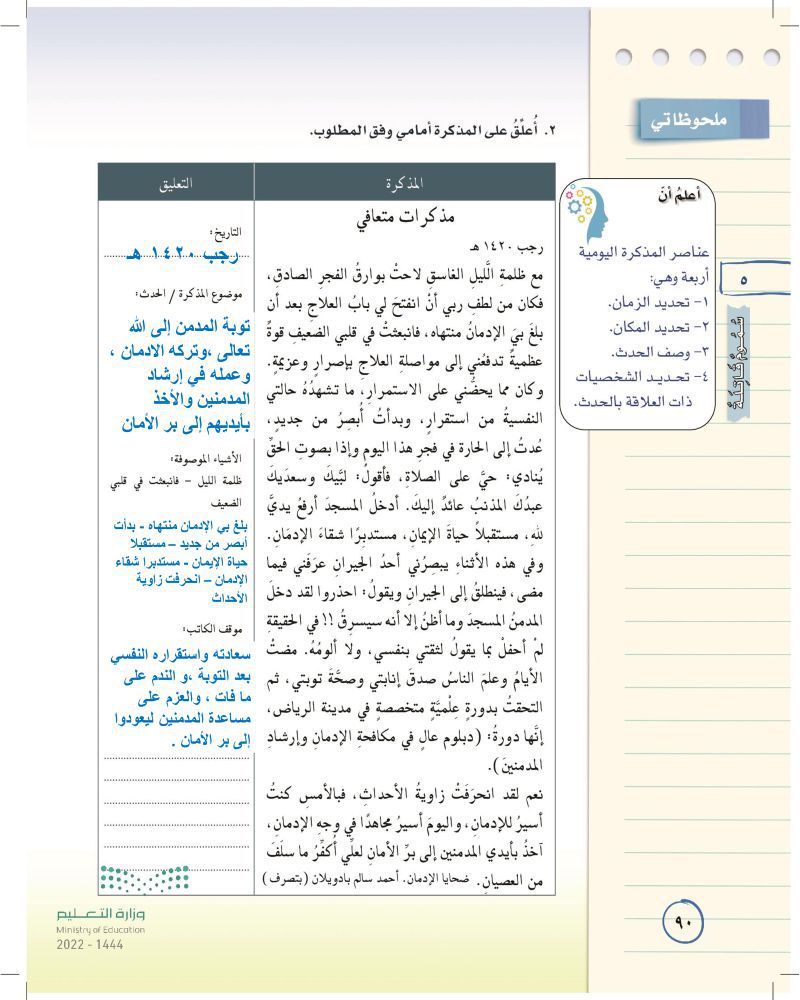 ملحوظاتي
٢. أُعلّقُ على المذكرة أمامي وفق المطلوب.
أعلمُ أنّ
عناصر المذكرة اليومية
أربعة وهي:
١- تحديد الزمان.
٢- تحديد المكان.
٣- وصف الحدث.
٤- تحديد الشخصيات
ذات العلاقة بالحدث.
٥
سُمُومٌ قَاتِلَةٌ
المذكرة
مذكرات متعافي
رجب ١٤٢٠ هـ
مع ظلمةِ الَّليلِ الغاسقِ لاحتْ بوارقُ الفجرِ الصادقِ،
فكان من لطفِ ربي أنْ انفتحَ لي بابُ العلاجِ بعد أن
بلغَ بيَ الإدمانُ منتهاه، فانبعثتْ في قلبي الضعيفِ قوةٌ
عظميةٌ تدفعُني إلى مواصلةِ العلاجِ بإصرارٍ وعزيمةٍ.
وكان مما يحضُّني على الاستمرارِ، ما تشهدُهُ حالتي
النفسيةُ من استقرارٍ، وبدأتُ أُبصِرُ من جديدٍ،
عُدتُ إلى الحارة في فجرِ هذا اليومِ وإذا بصوتِ الحقِّ
يُنادي: حيَّ على الصلاةِ، فأقولُ: لبَّيكَ وسعدَيكَ
عبدُكَ المذنبُ عائدٌ إليكَ. أدخلُ المسجدَ أرفعُ يديَّ
للهِ، مستقبلاً حياةَ الإيمانِ، مستدبرًا شقاءَ الإدمَانِ.
وفي هذه الأثناءِ يبصرُني أحدُ الجيرانِ عرَفَني فيما
مضى، فينطلقُ إلى الجيرانِ ويقولُ: احذروا لقد دخلَ
المدمنُ المسجدَ وما أظنُ إلا أنه سيسرِقُ !! في الحقيقةِ
لمْ أحفلْ بما يقولُ لثقتي بنفسي، ولا ألومُهُ. مضتْ
الأيامُ وعلمَ الناسُ صدقَ إنابتي وصحَّةَ توبتي، ثم
التحقتُ بدورةٍ عِلْميَّةٍ متخصصةٍ في مدينة الرياضِ،
إنَّها دورةُ: (دبلوم عالٍ في مكافحةِ الإدمانِ وإرشادِ
المدمنين).
نعم لقد انحرَفَتْ زاويةُ الأحداثِ، فبالأمسِ كنتُ
أسيرُ للإدمانِ، واليومَ أسيرُ مجاهدًا في وجهِ الإدمانِ،
آخذُ بأيدي المدمنين إلى برِّ الأمانِ لعلّي أُكفِّرُ ما سلَفَ
من العصيانِ. ضحايا الإدمان. أحمد سالم بادويلان (بتصرف)
التعليق
التاريخ:
رجب ١٤٢٠ هـ
موضوع المذكرة / الحدث:
توبة المدمن إلى الله
تعالى ،وتركه الادمان ،
وعمله في إرشاد
المدمنين والأخذ
بأيديهم إلى بر الأمان
الأشياء الموصوفة:
ظلمة الليل – فانبعثت في قلبي
الضعيف
بلغ بي الإدمان منتهاه - بدأت
أبصر من جديد – مستقبلا
حياة الإيمان - مستدبرا شقاء
الإدمان – انحرفت زاوية
الأحداث
موقف الكاتب:
سعادته واستقراره النفسي
بعد التوبة ،و الندم على
ما فات ، والعزم على
مساعدة المدمنين ليعودوا
إلى بر الأمان .
وزارة التعليم
Ministry of Education
2022 - 1444
٩٠